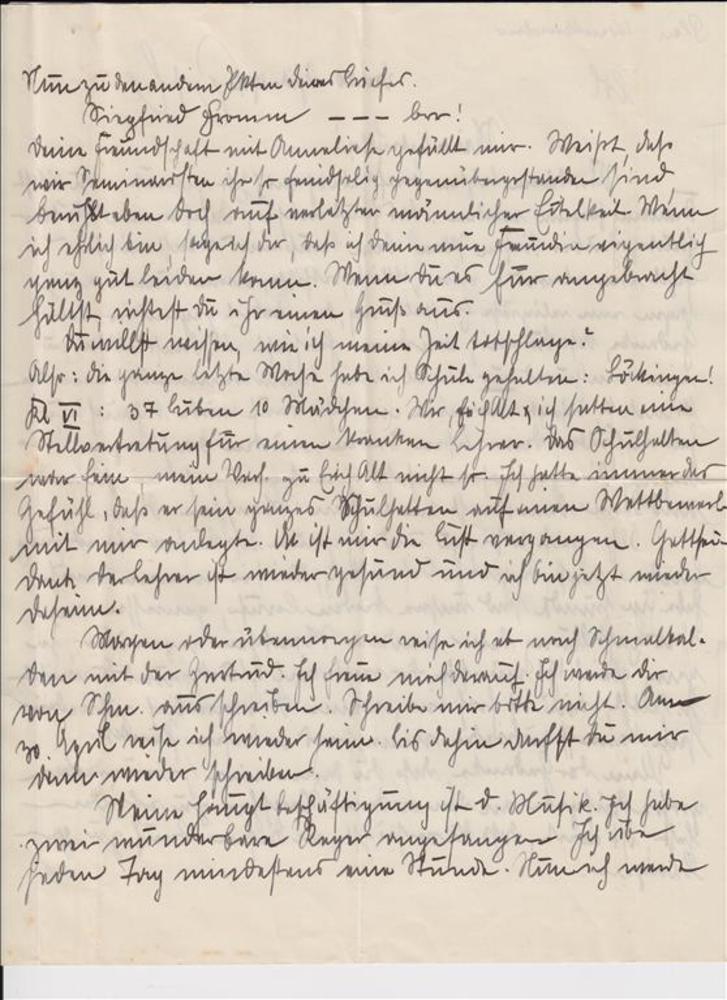 Nun zu den andern Pkten deines Briefes.
Siegfried Fromm --- brr!
Deine Freundschaft mit Anneliese gefällt mir. Weißt, daß
wir Seminaristen ihr so feindselig gegenübergestanden sind,
beruht eben doch auf verletzter männlicher Eitelkeit. Wenn
ich ehrlich bin, sage ich dir, daß ich deine neue Freundin eigentlich
ganz gut leiden kann. Wenn du es für angebracht
hältst, richtest du ihr einen Gruß aus.
Du willst wissen, wie ich meine Zeit totschlage?
Also: die ganze letzte Woche habe ich Schule gehalten: Böttingen!
Kl VI : 37 Buben 10 Mädchen. Wir, Erich Alt & ich hatten eine
Stellvertretung für einen kranken Lehrer. Das Schulhalten
war fein, mein Verh. zu Erich Alt nicht so. Ich hatte immer das
Gefühl, daß er sein ganzes Schulhalten auf einen Wettbewerb
mit mir anlegte. Da ist mir die Lust vergangen. Gottsei
dank der Lehrer ist wieder gesund und ich bin jetzt wieder
daheim.
Morgen oder übermorgen reise ich ab nach Schmalkal-
den mit der Gertrud. Ich freue mich darauf. Ich werde dir
von Schm. aus schreiben. Schreibe mir bitte nicht. Am
30 April reise ich wieder heim. Bis dahin darfst du mir
dann wieder schreiben.
Meine Hauptbeschäftigung ist d. Musik. Ich habe
zwei wunderbare Reger angefangen Ich übe
jeden Tag mindestens eine Stunde. Nun ich werde